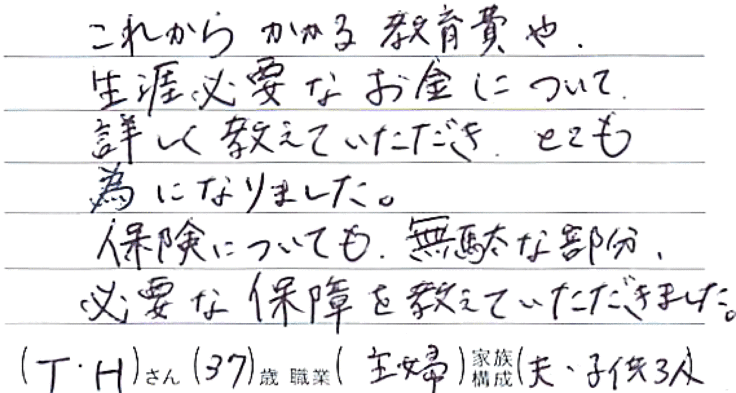 これから かかる 教育費や、
生涯必要なお金について、
詳しく教えていただき、とても
為になりました。
保険についても、無駄な部分、
必要な保障を教えていただきました。
(T・H)さん (37)歳 職業(主婦)家族構成(夫・子供3人